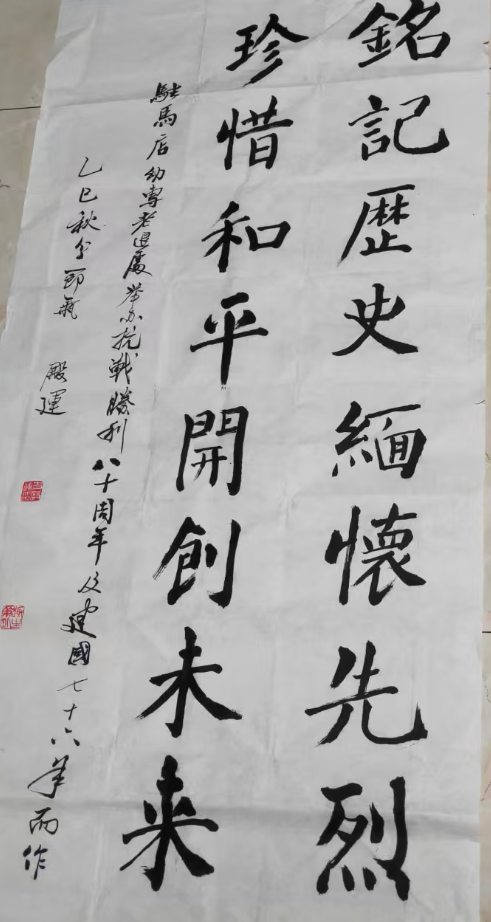 銘記歷史緬懷先烈
珍惜和平開創未来
駐馬店幼專老退處举办抗戰勝利八十周年及建國七十六年而作
乙巳秋分節氣 殿運